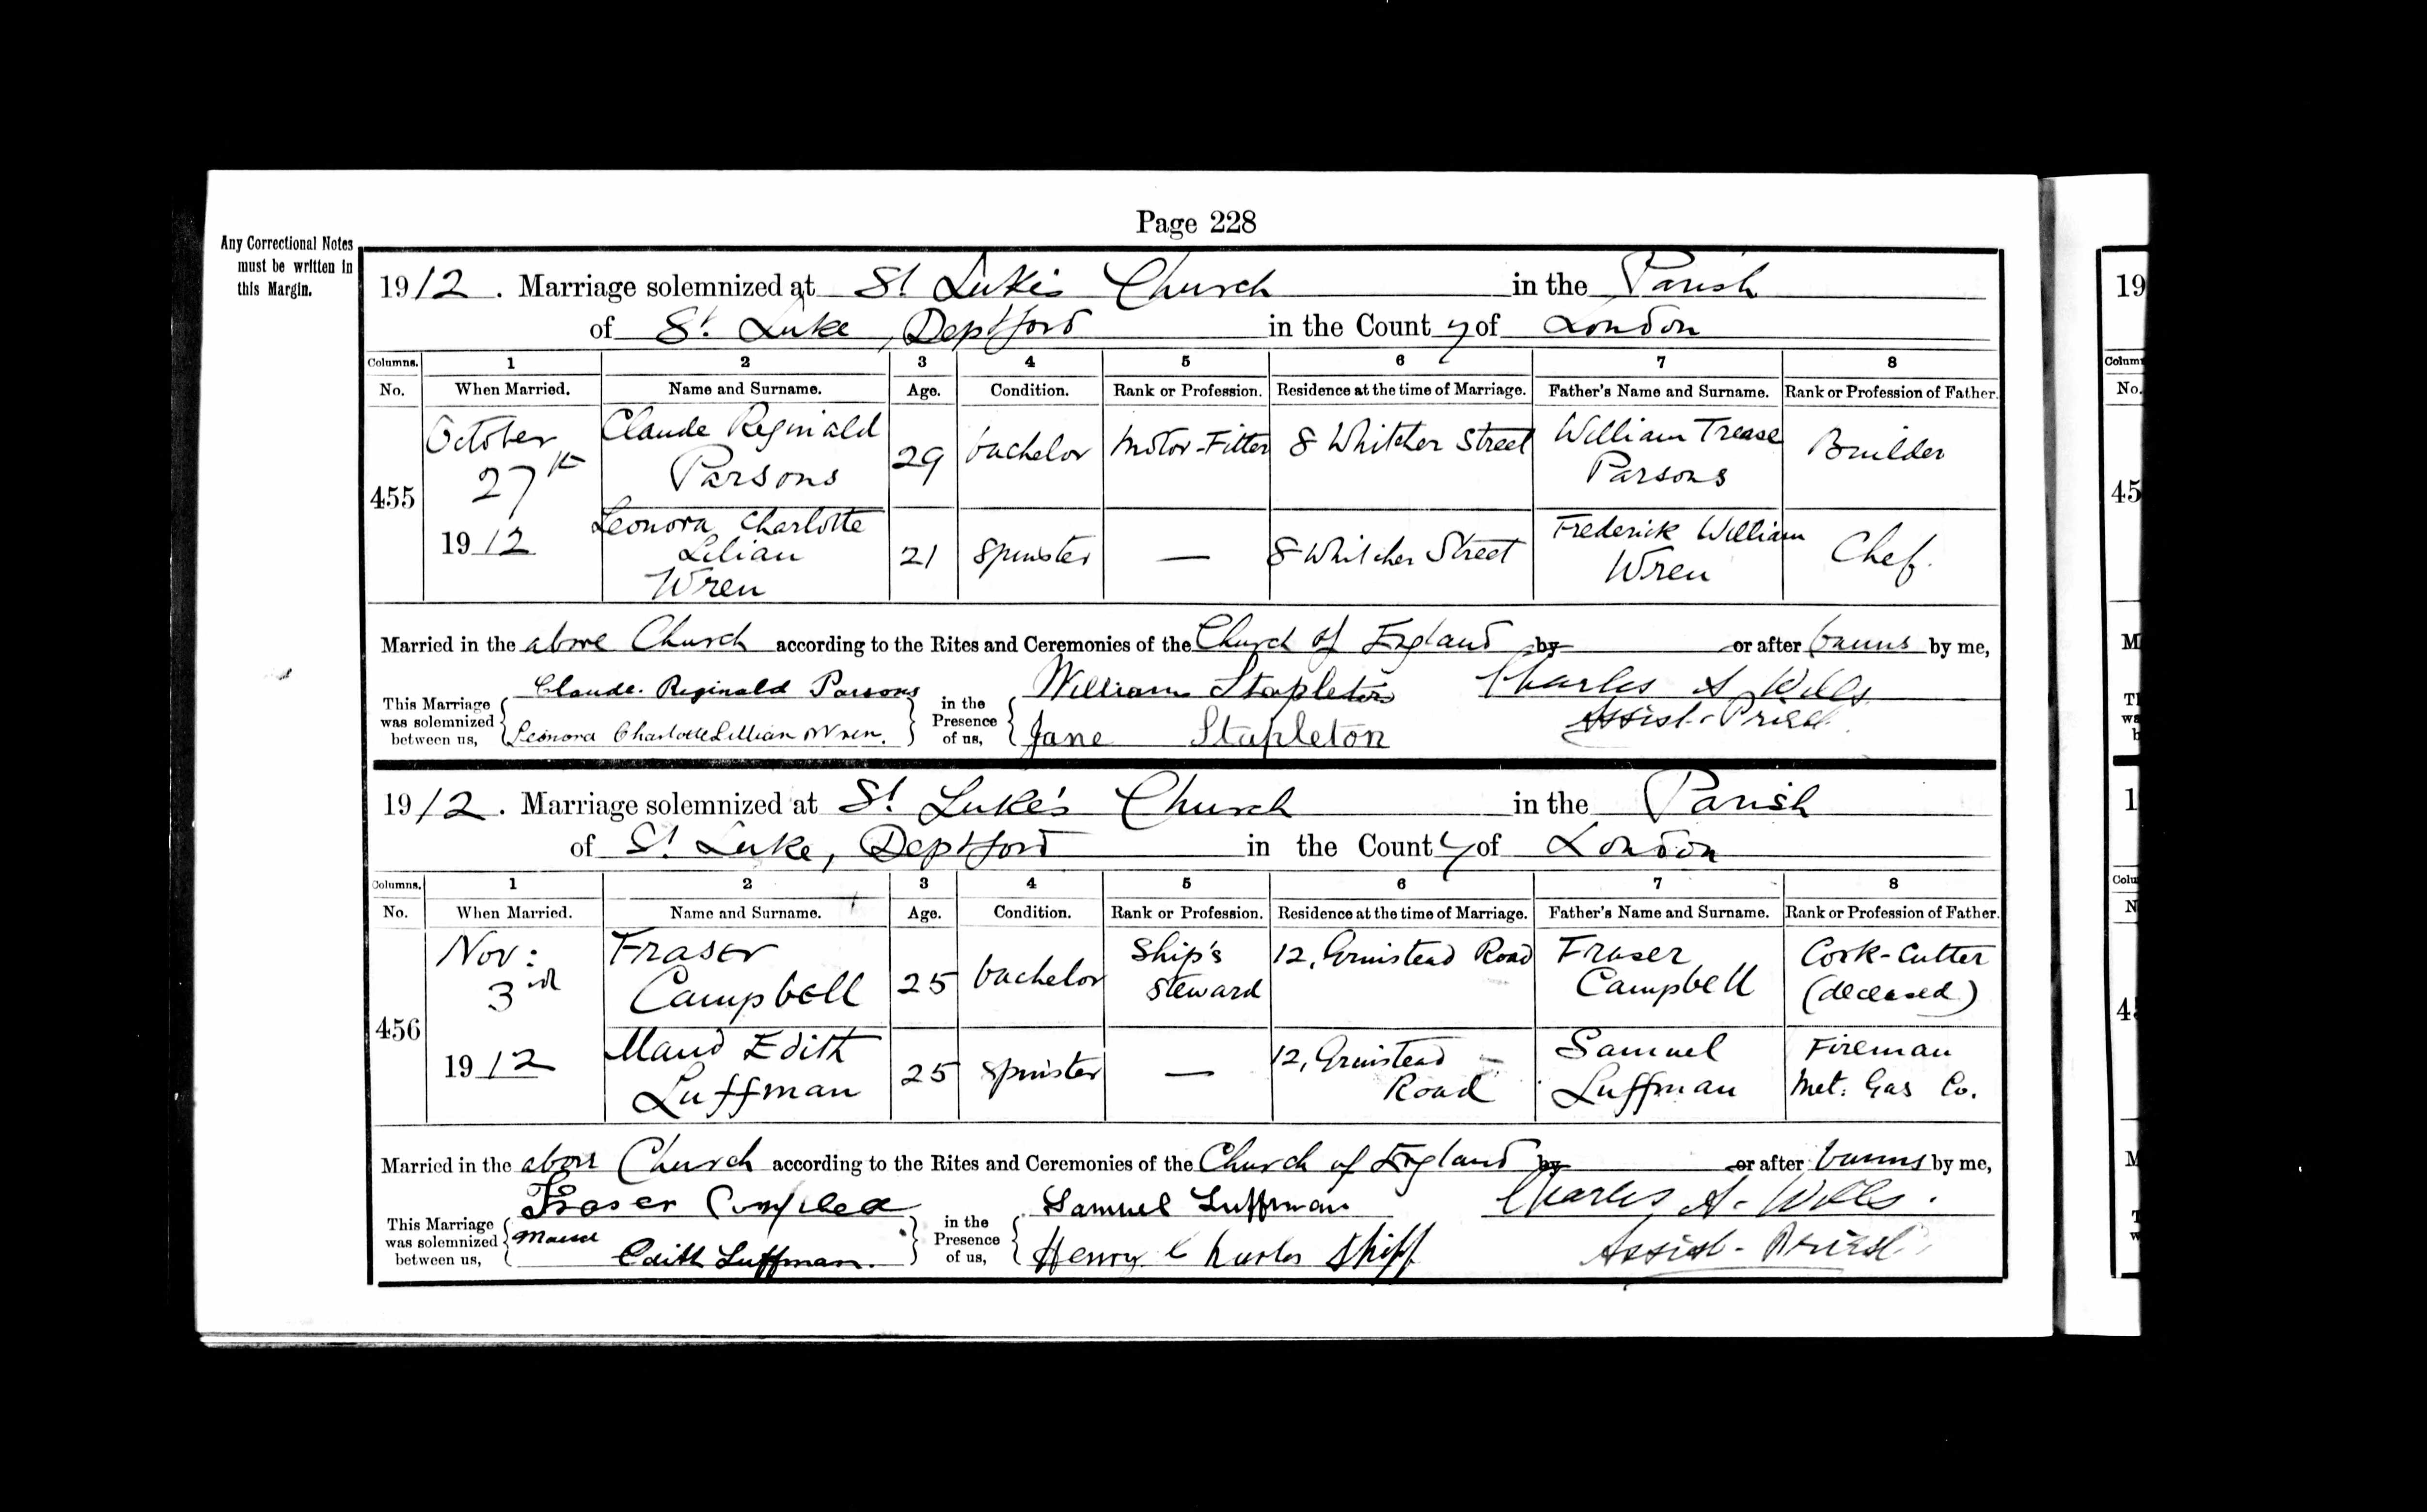 Page 228
Any Correctional Notes
must be written in
this Margin.
1912. Marriage solemnized at St Luke's Church in the Parish
of St. Luke, Deptford in the County of London
Columns. 1 2 3 4 5 6 7 8
No. When Married. Name and Surname. Age. Condition. Rank or Profession. Residence at the time of Marriage. Father's Name and Surname. Rank or Profession of Father.
455
October
27th
1912
Claude Reginald
Parsons
29 bachelor Motor-Fitter 8 Whitcher Street
William Trease
Parsons
Builder
Leonora Charlotte
Lilian
Wren
21 Spinster — 8 Whitcher Street
Frederick William
Wren
Chef.
Married in the above Church according to the Rites and Ceremonies of the Church of England by or after banns by me,
This Marriage
was solemnized
between us,
Claude. Reginald Parsons
Leonora Charlotte Lillian Wren.
in the
Presence
of us,
William Stapleton
Jane Stapleton
Charles A. Wills
Assist-Priest.
1912. Marriage solemnized at St Luke's Church in the Parish
of St Luke, Deptford in the County of London
Columns. 1 2 3 4 5 6 7 8
No. When Married. Name and Surname. Age. Condition. Rank or Profession. Residence at the time of Marriage. Father's Name and Surname. Rank or Profession of Father.
456
Nov:
3rd
1912
Fraser
Campbell
25 bachelor
Ship's
Steward
12, Grinstead Road
Fraser
Campbell
Cork-Cutter
(deceased)
Maud Edith
Luffman
25 spinster —
12, Grinstead
Road
Samuel
Luffman
Fireman
Met. Gas Co.
Married in the above Church according to the Rites and Ceremonies of the Church of England by or after banns by me,
This Marriage
was solemnized
between us,
Fraser Campbell
Maud
Edith Luffman.
in the
Presence
of us,
Samuel Luffman
Henry Charles Shiff
Charles A. Wills.
Assist-Priest
19
No.
45
M
19